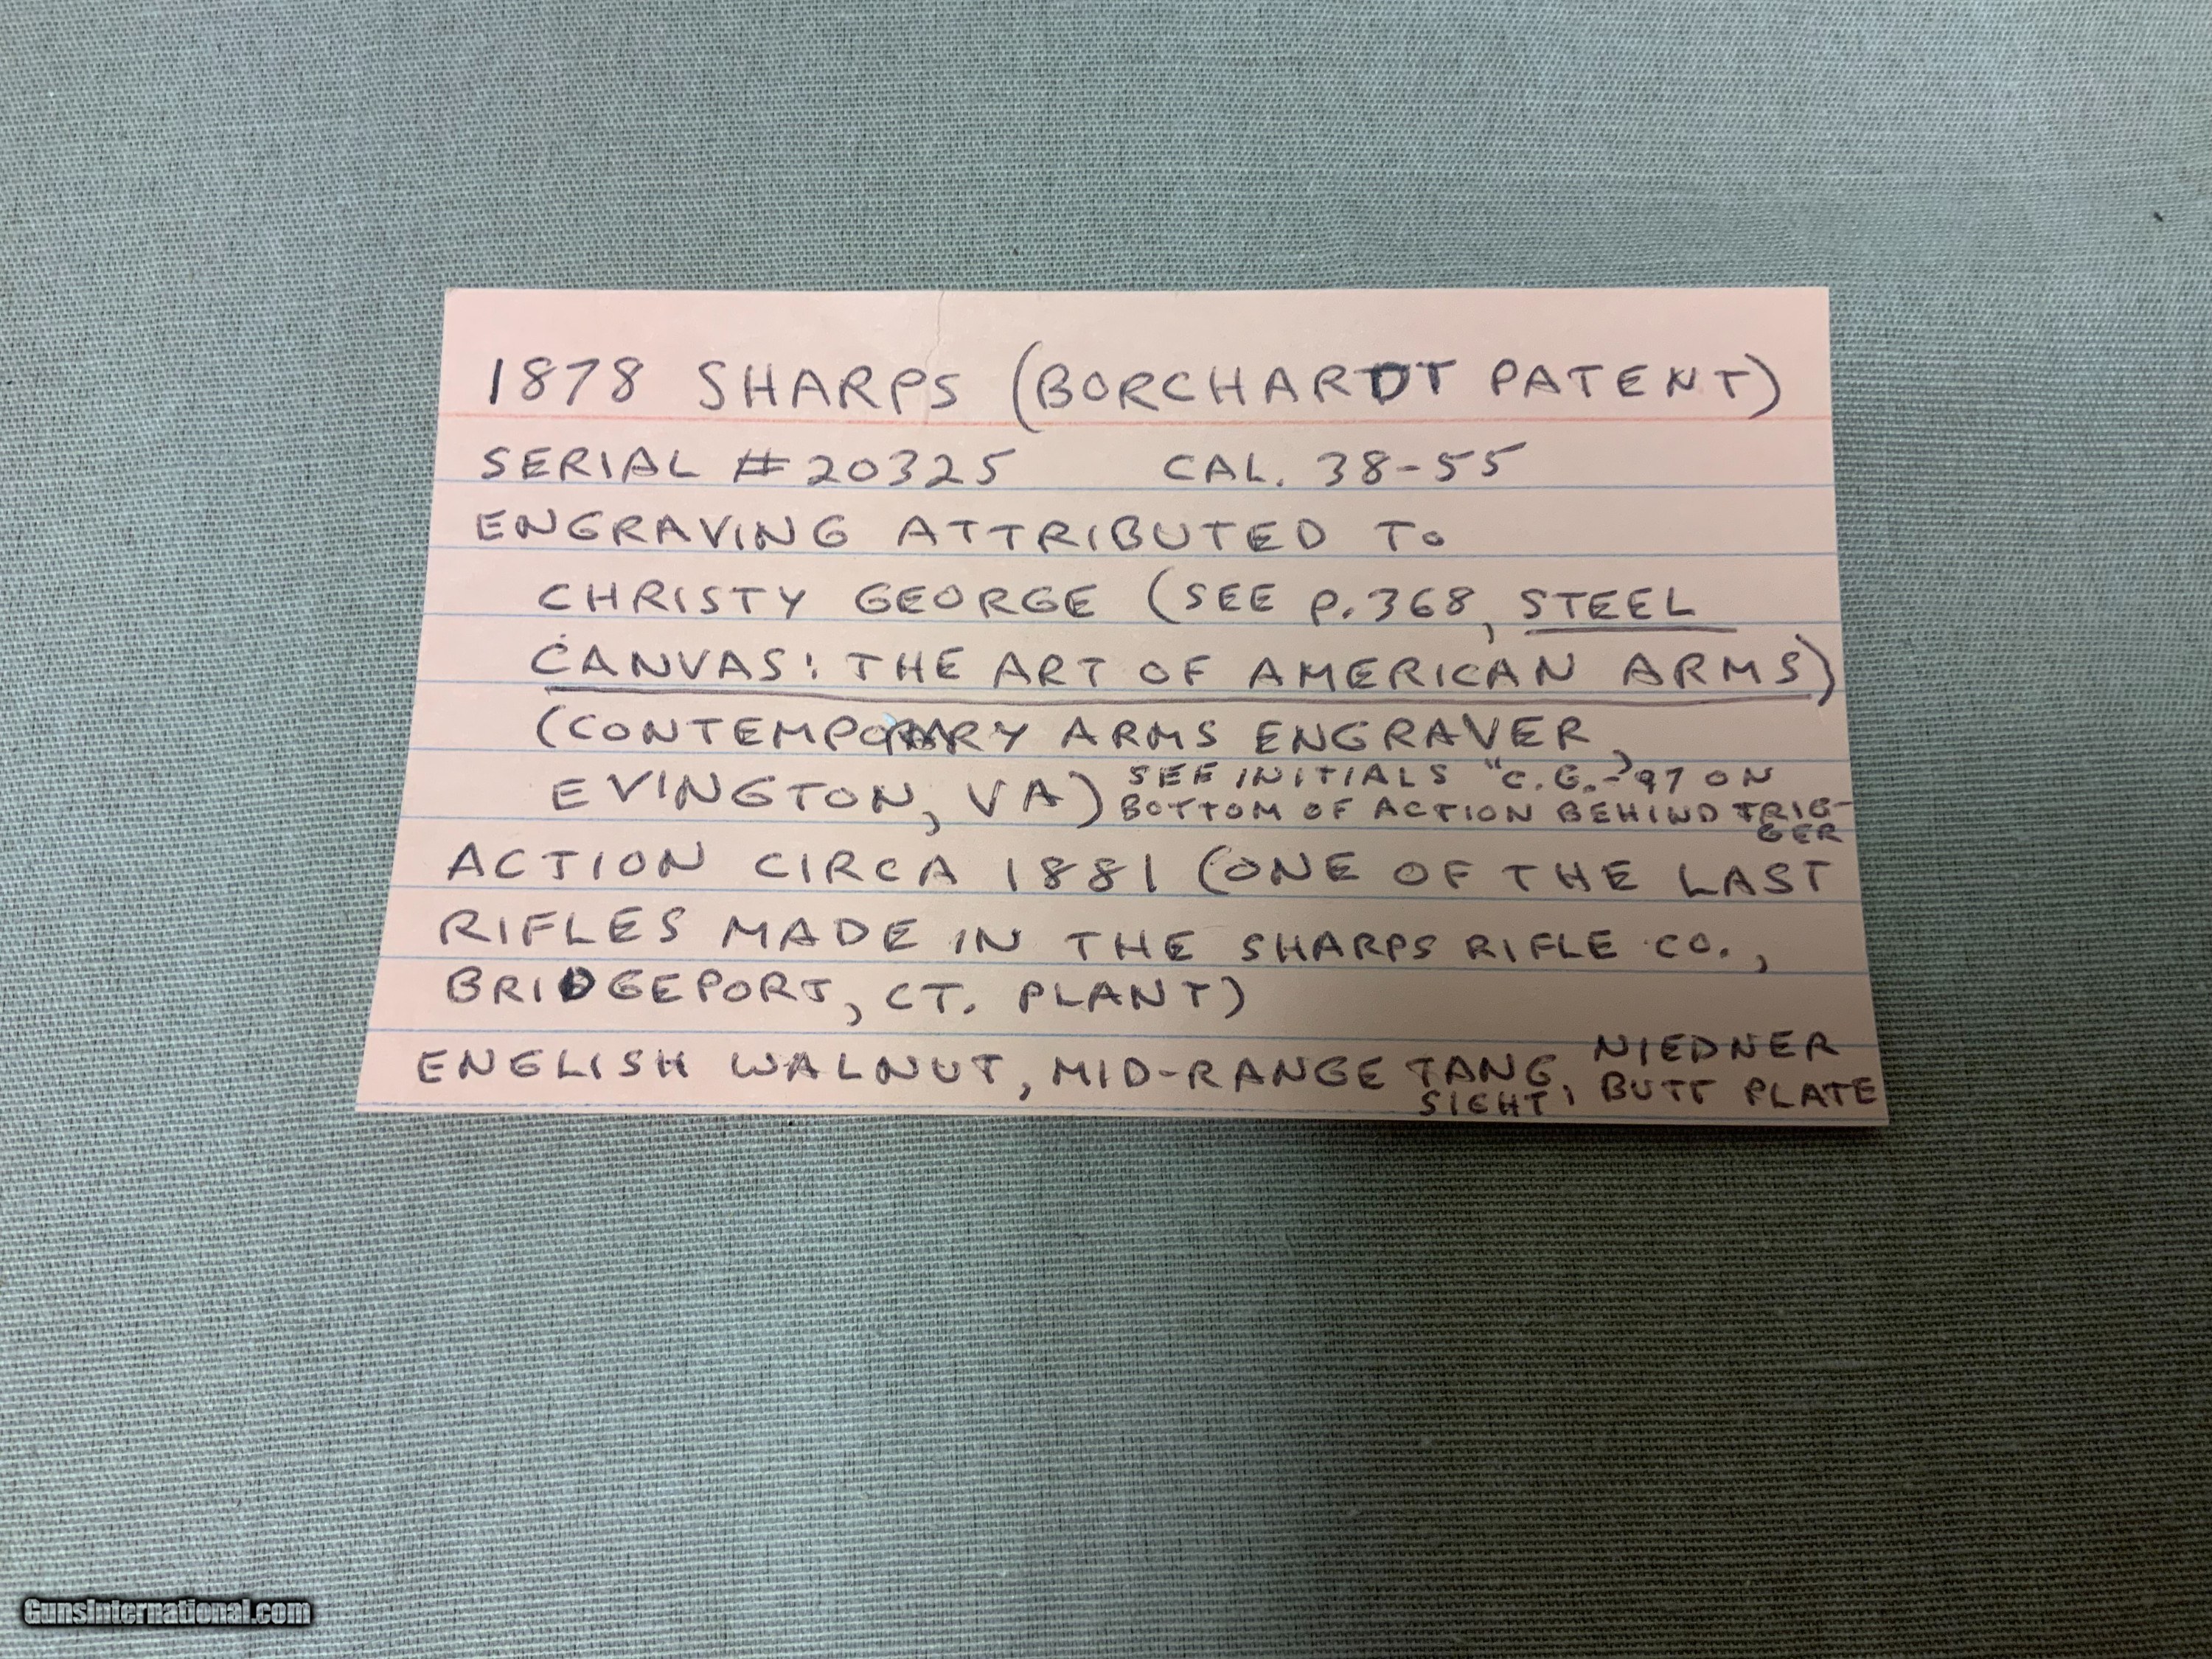 1878 SHARPS (BORCHARDT PATENT)
SERIAL #20325 CAL. 38-55
ENGRAVING ATTRIBUTED To
CHRISTY GEORGE (SEE P.368, STEEL
CANVAS: THE ART OF AMERICAN ARMS)
(CONTEMPORARY ARMS ENGRAVER,
EVINGTON, VA) SEE INITIALS "C.G.-'97 ON
BOTTOM OF ACTION BEHIND TRIG-
GER
ACTION CIRCA 1881 (ONE OF THE LAST
RIFLES MADE IN THE SHARPS RIFLE CO.,
BRIDGEPORT, CT. PLANT)
ENGLISH WALNUT, MID-RANGE TANG SIGHT, NIEDNER
BUTT PLATE
GunsInternational.com